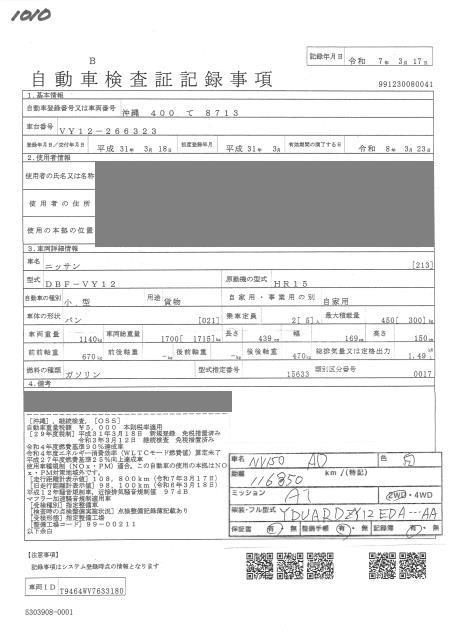 1010
記録年月日 令和 7年 3月17日
B
自動車検査証記録事項
991230080041
1.基本情報
自動車登録番号又は車両番号 沖縄 400 て 8713
車台番号 VY12-266323
登録年月日/交付年月日 平成 31年 3月 18日 初度登録年月 平成 31年 3月 有効期間の満了する日 令和 8年 3月23日
2.使用者情報
使用者の氏名又は名称
使用者の住所
使用の本拠の位置
3.車両詳細情報
車名 ニッサン [213]
型式 DBF-VY12 原動機の型式 HR15
自動車の種別 小型 用途 貨物 自家用・事業用の別 自家用
車体の形状 バン [021] 乗車定員 2[ 5]人 最大積載量 450[ 300]kg
車両重量 1140kg 車両総重量 1700[ 1715]kg 長さ 439cm 幅 169cm 高さ 150cm
前前軸重 670kg 前後軸重 -kg 後前軸重 -kg 後後軸重 470kg 総排気量又は定格出力 1.49L
燃料の種類 ガソリン 型式指定番号 15633 類別区分番号 0017
4.備考
[沖縄], 継続検査, [OSS]
自動車重量税額 ¥5,000 本則税率適用
[29年度税制] 平成31年3月18日 新規登録 免税措置済み
令和3年3月12日 継続検査 免税措置済み
令和4年度燃費基準90%達成車
令和4年度エネルギー消費効率(WLTCモード燃費値)算定未了
平成27年度燃費基準25%向上達成車
使用車種規制(NOx・PM)適合, この自動車の使用の本拠はNOx・PM対策地域外です。
[走行距離計表示値] 108,800km(令和7年3月17日)
[旧走行距離計表示値] 98,100km(令和6年3月18日)
平成12年騒音規制車, 近接排気騒音規制値 97dB
マフラー加速騒音規制適用車
[受検種別] 指定整備車
[検査時の点検整備実施状況] 点検整備記録簿記載あり
[受検形態] 指定整備工場
[整備工場コード] 99-00211
以下余白
車名 NV150 AD 色 白
距離 116850 km/(特記)
ミッション AT 2WD・4WD
架装・フル型式 YDUARDZY12EDA---AA
保証書 有・無 整備手帳 有・無 記録簿 有・無
【注意事項】
記載事項はシステム登録時点の情報となります
車両ID T9464WV7633180
S303908-0001